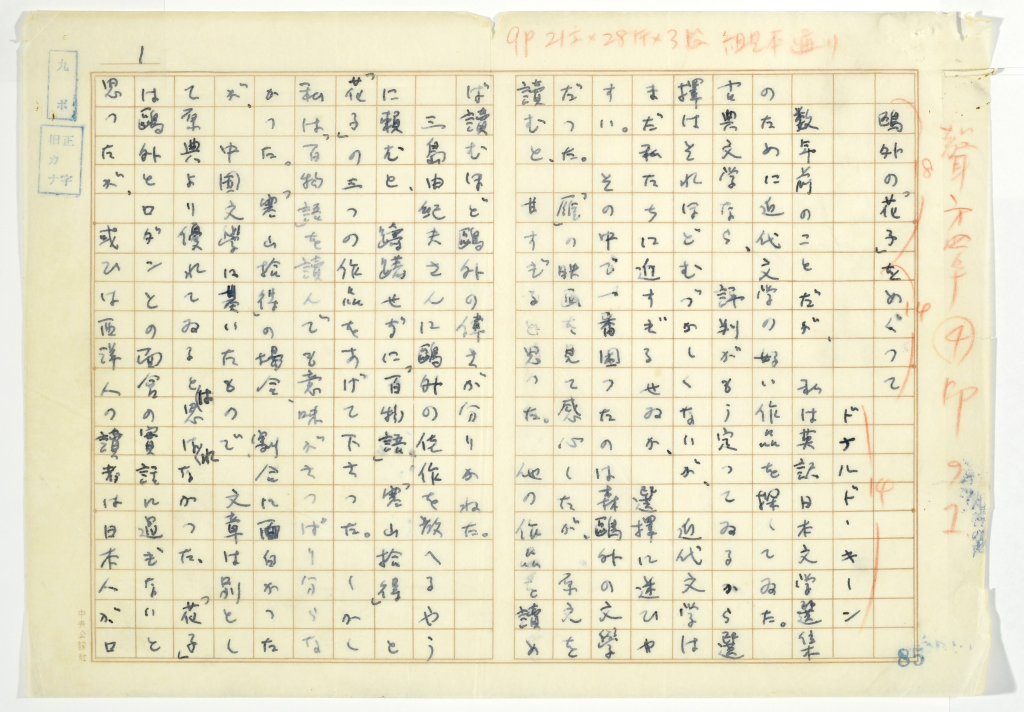 9P 21字×28行×3段 組見本通り
聲 才四号 ④ 印
18
14
14
九ポ
旧正
カ字
ナ
1
鷗外の「花子」をめぐつて
ドナルド・キーン
数年前のことだが、私は英訳日本文学選集
のために近代文学の好い作品を探してゐた。
古典文学なら、評判がもう定つてゐるから選
擇はそれほどむづかしくないが、近代文学は
まだ私たちに近すぎるせゐか、選擇に迷ひや
すい。その中で一番困つたのは森鷗外の文學
だつた。「雁」の映画を見て感心したが、原文を
讀むと、甘すぎると思つた。他の作品を讀め
ば讀むほど鷗外の偉さが分りかねた。
三島由紀夫さんに鷗外の佳作を教へるやう
に頼むと、躊躇せずに「百物語」、「寒山拾得」と
「花子」の三つの作品をあげて下さつた。しかし
私は「百物語」を讀んでも意味がさつぱり分らな
かつた。「寒山拾得」の場合、割合に面白かつた
が、中国文學に基いたもので、文章は別とし
て原典より優れてゐるとは思はれなかつた。「花子」
は鷗外とロダンとの面会の實話に過ぎないと
思つたが、或ひは西洋人の讀者は日本人がロ
中央公論社
85